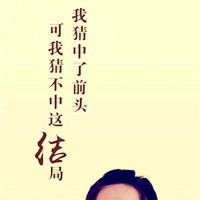 我猜中了前头
可我猜不中这
结局